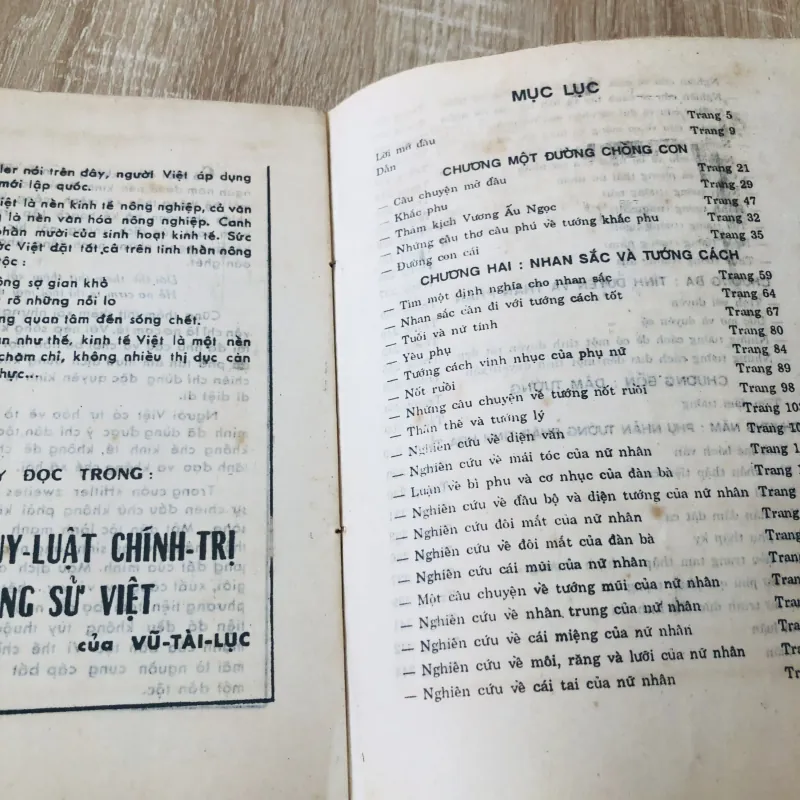 ler nói trên đây, người Việt áp dụng
mới lập quốc.
iệt là nền kinh tế nông nghiệp, cả văn
g là nền văn hóa nông nghiệp. Canh
phần mười của sinh hoạt kinh tế. Sức
ớc Việt đặt tất cả trên tinh thần nông
tộc :
ông sợ gian khổ
rõ những nỗi lo
ng quan tâm đến sống chết.
ần như thế, kinh tế Việt là một nền
chăm chỉ, không nhiều thị dục cần
hực...
Y ĐỌC TRONG :
UY-LUẬT CHÍNH-TRỊ
NG SỬ VIỆT
của VŨ-TÀI-LỤC
MỤC LỤC
Lời mở đầu Trang 5
Dẫn Trang 9
CHƯƠNG MỘT ĐƯỜNG CHỒNG CON
— Câu chuyện mở đầu Trang 21
— Khắc phu Trang 29
— Thảm kịch Vương Ấu Ngọc Trang 47
— Những câu thơ câu phú về tướng khắc phu Trang 32
— Đường con cái Trang 35
CHƯƠNG HAI : NHAN SẮC VÀ TƯỚNG CÁCH
— Tìm một định nghĩa cho nhan sắc Trang 59
— Nhan sắc cân đi với tướng cách tốt Trang 64
— Tuổi và nữ tính Trang 67
— Yêu phụ Trang 80
— Tướng cách vinh nhục của phụ nữ Trang 84
— Nốt ruồi Trang 89
— Những câu chuyện về tướng nốt ruồi Trang 98
— Thân thể và tướng lý Trang 103
— Nghiên cứu về diện văn Trang 10
— Nghiên cứu về mái tóc của nữ nhân Trang 1
— Luận về bì phu và cơ nhục của đàn bà Trang 1
— Nghiên cứu về đầu bộ và diện tướng của nữ nhân Trang
— Nghiên cứu đôi mắt của nữ nhân Trang
— Nghiên cứu về đôi mắt của đàn bà Trang
— Nghiên cứu cái mũi của nữ nhân Trang
— Một câu chuyện về tướng mũi của nữ nhân Trang
— Nghiên cứu về nhân trung của nữ nhân Trang
— Nghiên cứu về cái miệng của nữ nhân Trang
— Nghiên cứu về môi, răng và lưỡi của nữ nhân Trang
— Nghiên cứu về cái tai của nữ nhân Trang